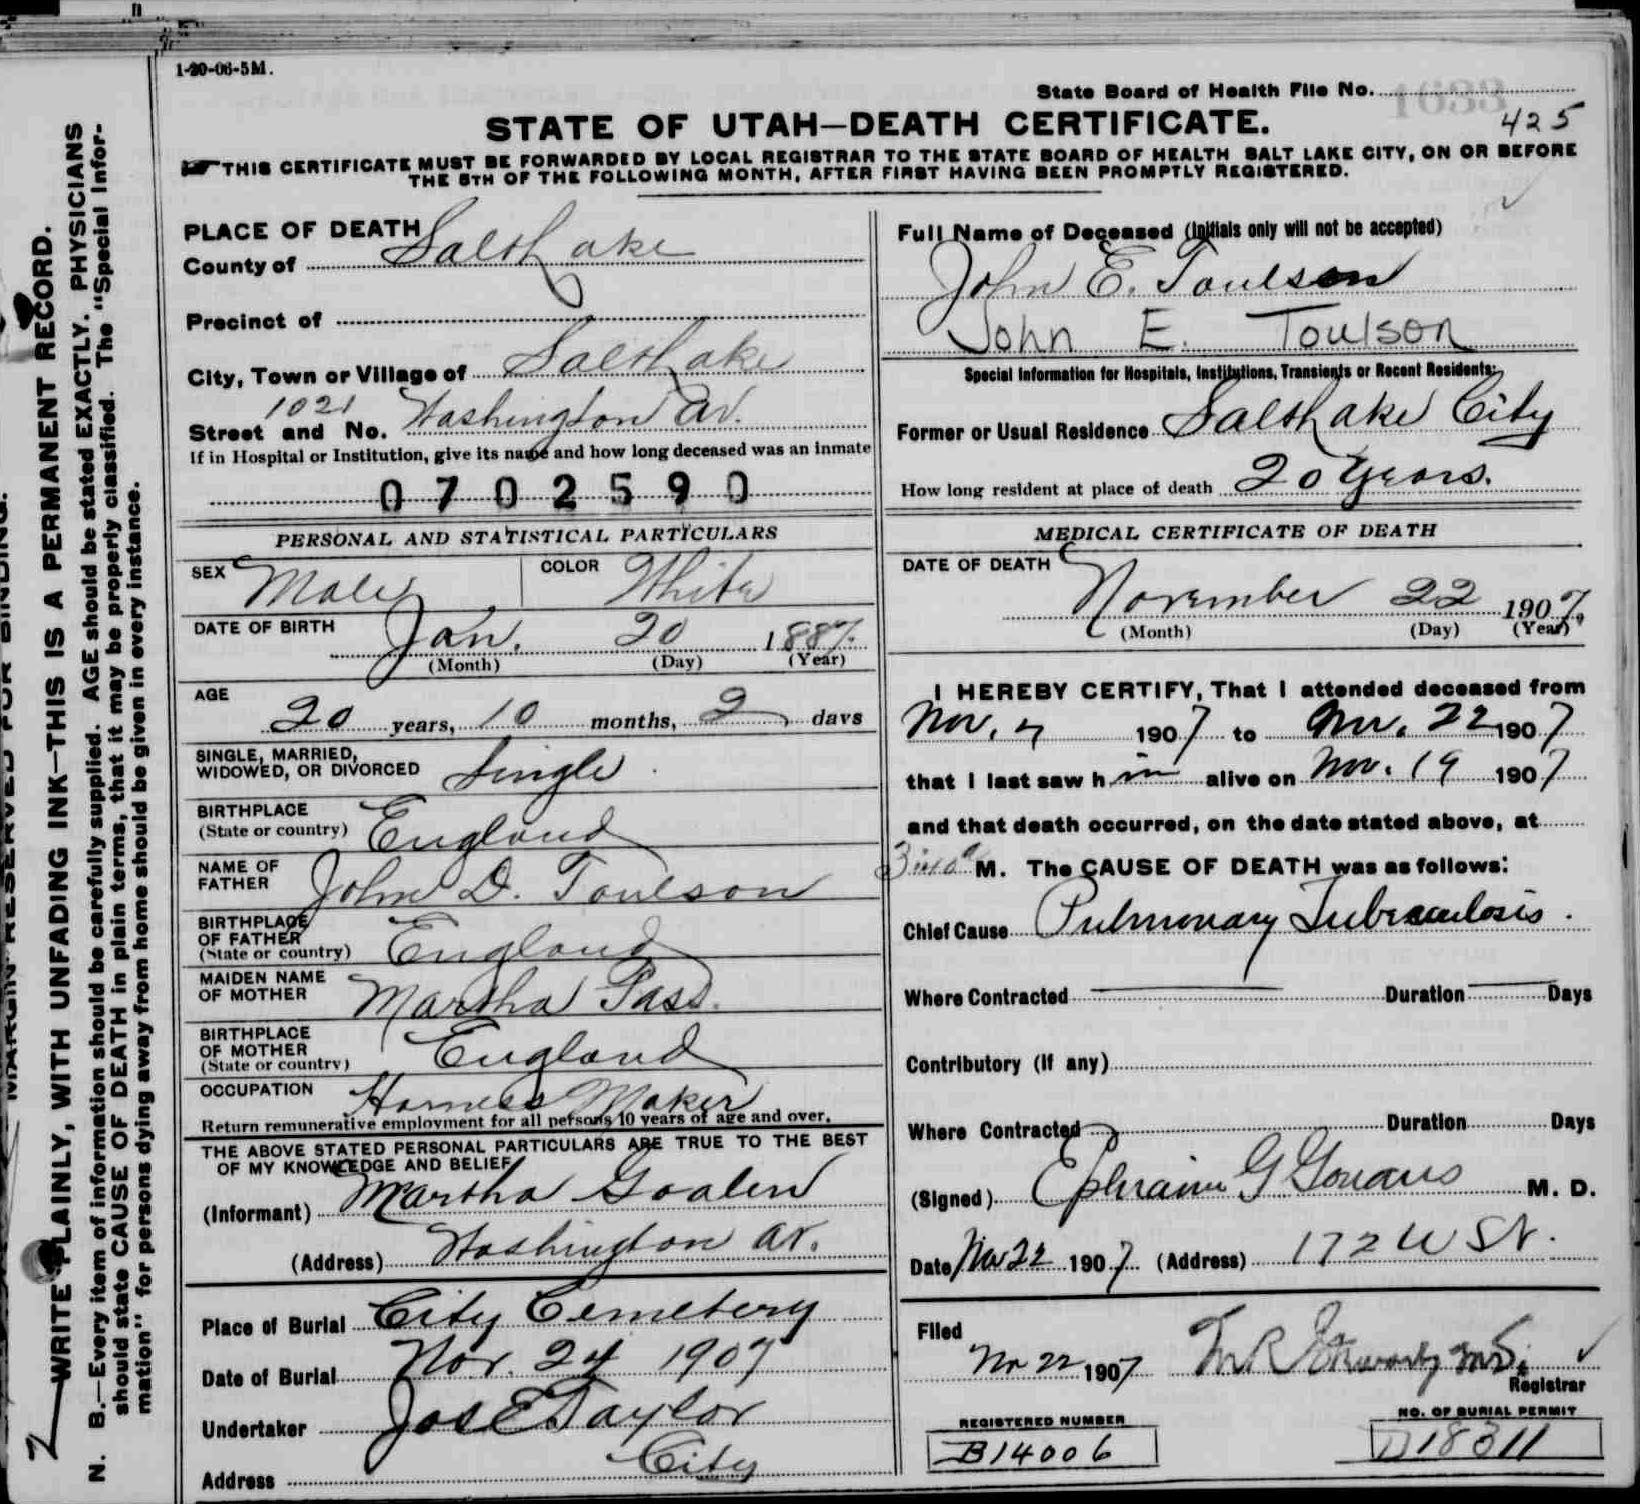 1-20-06-5M.
State Board of Health File No.
425
STATE OF UTAH—DEATH CERTIFICATE.
THIS CERTIFICATE MUST BE FORWARDED BY LOCAL REGISTRAR TO THE STATE BOARD OF HEALTH SALT LAKE CITY, ON OR BEFORE
THE 5TH OF THE FOLLOWING MONTH, AFTER FIRST HAVING BEEN PROMPTLY REGISTERED.
MARGIN RESERVED FOR BINDING.
WRITE PLAINLY, WITH UNFADING INK—THIS IS A PERMANENT RECORD.
N. B.—Every item of information should be carefully supplied. AGE should be stated EXACTLY. PHYSICIANS
should state CAUSE OF DEATH in plain terms, that it may be properly classified. The "Special Infor-
mation" for persons dying away from home should be given in every instance.
PLACE OF DEATH
County of Salt Lake
Precinct of
City, Town or Village of Salt Lake
Street and No. 1021 Washington Av.
If in Hospital or Institution, give its name and how long deceased was an inmate
0702590
PERSONAL AND STATISTICAL PARTICULARS
SEX Male COLOR White
DATE OF BIRTH Jan. 20 1887.
(Month) (Day) (Year)
AGE
20 years, 10 months, 2 days
SINGLE, MARRIED,
WIDOWED, OR DIVORCED Single
BIRTHPLACE
(State or country) England
NAME OF
FATHER John D. Toulson
BIRTHPLACE
OF FATHER
(State or country) England
MAIDEN NAME
OF MOTHER Martha Pass.
BIRTHPLACE
OF MOTHER
(State or country) England
OCCUPATION Harness Maker
Return remunerative employment for all persons 10 years of age and over.
THE ABOVE STATED PERSONAL PARTICULARS ARE TRUE TO THE BEST
OF MY KNOWLEDGE AND BELIEF
(Informant) Martha Goalen
(Address) Washington av.
Place of Burial City Cemetery
Date of Burial Nov. 24 1907
Undertaker Jos E Taylor
Address City
Full Name of Deceased (Initials only will not be accepted)
John E. Toulson
John E. Toulson
Special Information for Hospitals, Institutions, Transients or Recent Residents:
Former or Usual Residence Salt Lake City
How long resident at place of death 20 Years.
MEDICAL CERTIFICATE OF DEATH
DATE OF DEATH
November 22 1907.
(Month) (Day) (Year)
I HEREBY CERTIFY, That I attended deceased from
Nov. 7 1907 to Nov. 22 1907
that I last saw h im alive on Nov. 19 1907
and that death occurred, on the date stated above, at
M. The CAUSE OF DEATH was as follows:
Chief Cause Pulmonary Tuberculosis.
Where Contracted Duration Days
Contributory (If any)
Where Contracted Duration Days
(Signed) Ephraim G Gowans M. D.
Date Nov 22 1907. (Address) 172 W St.
Filed
Nov 22 1907
Registrar
REGISTERED NUMBER
B14006
NO. OF BURIAL PERMIT
D18311